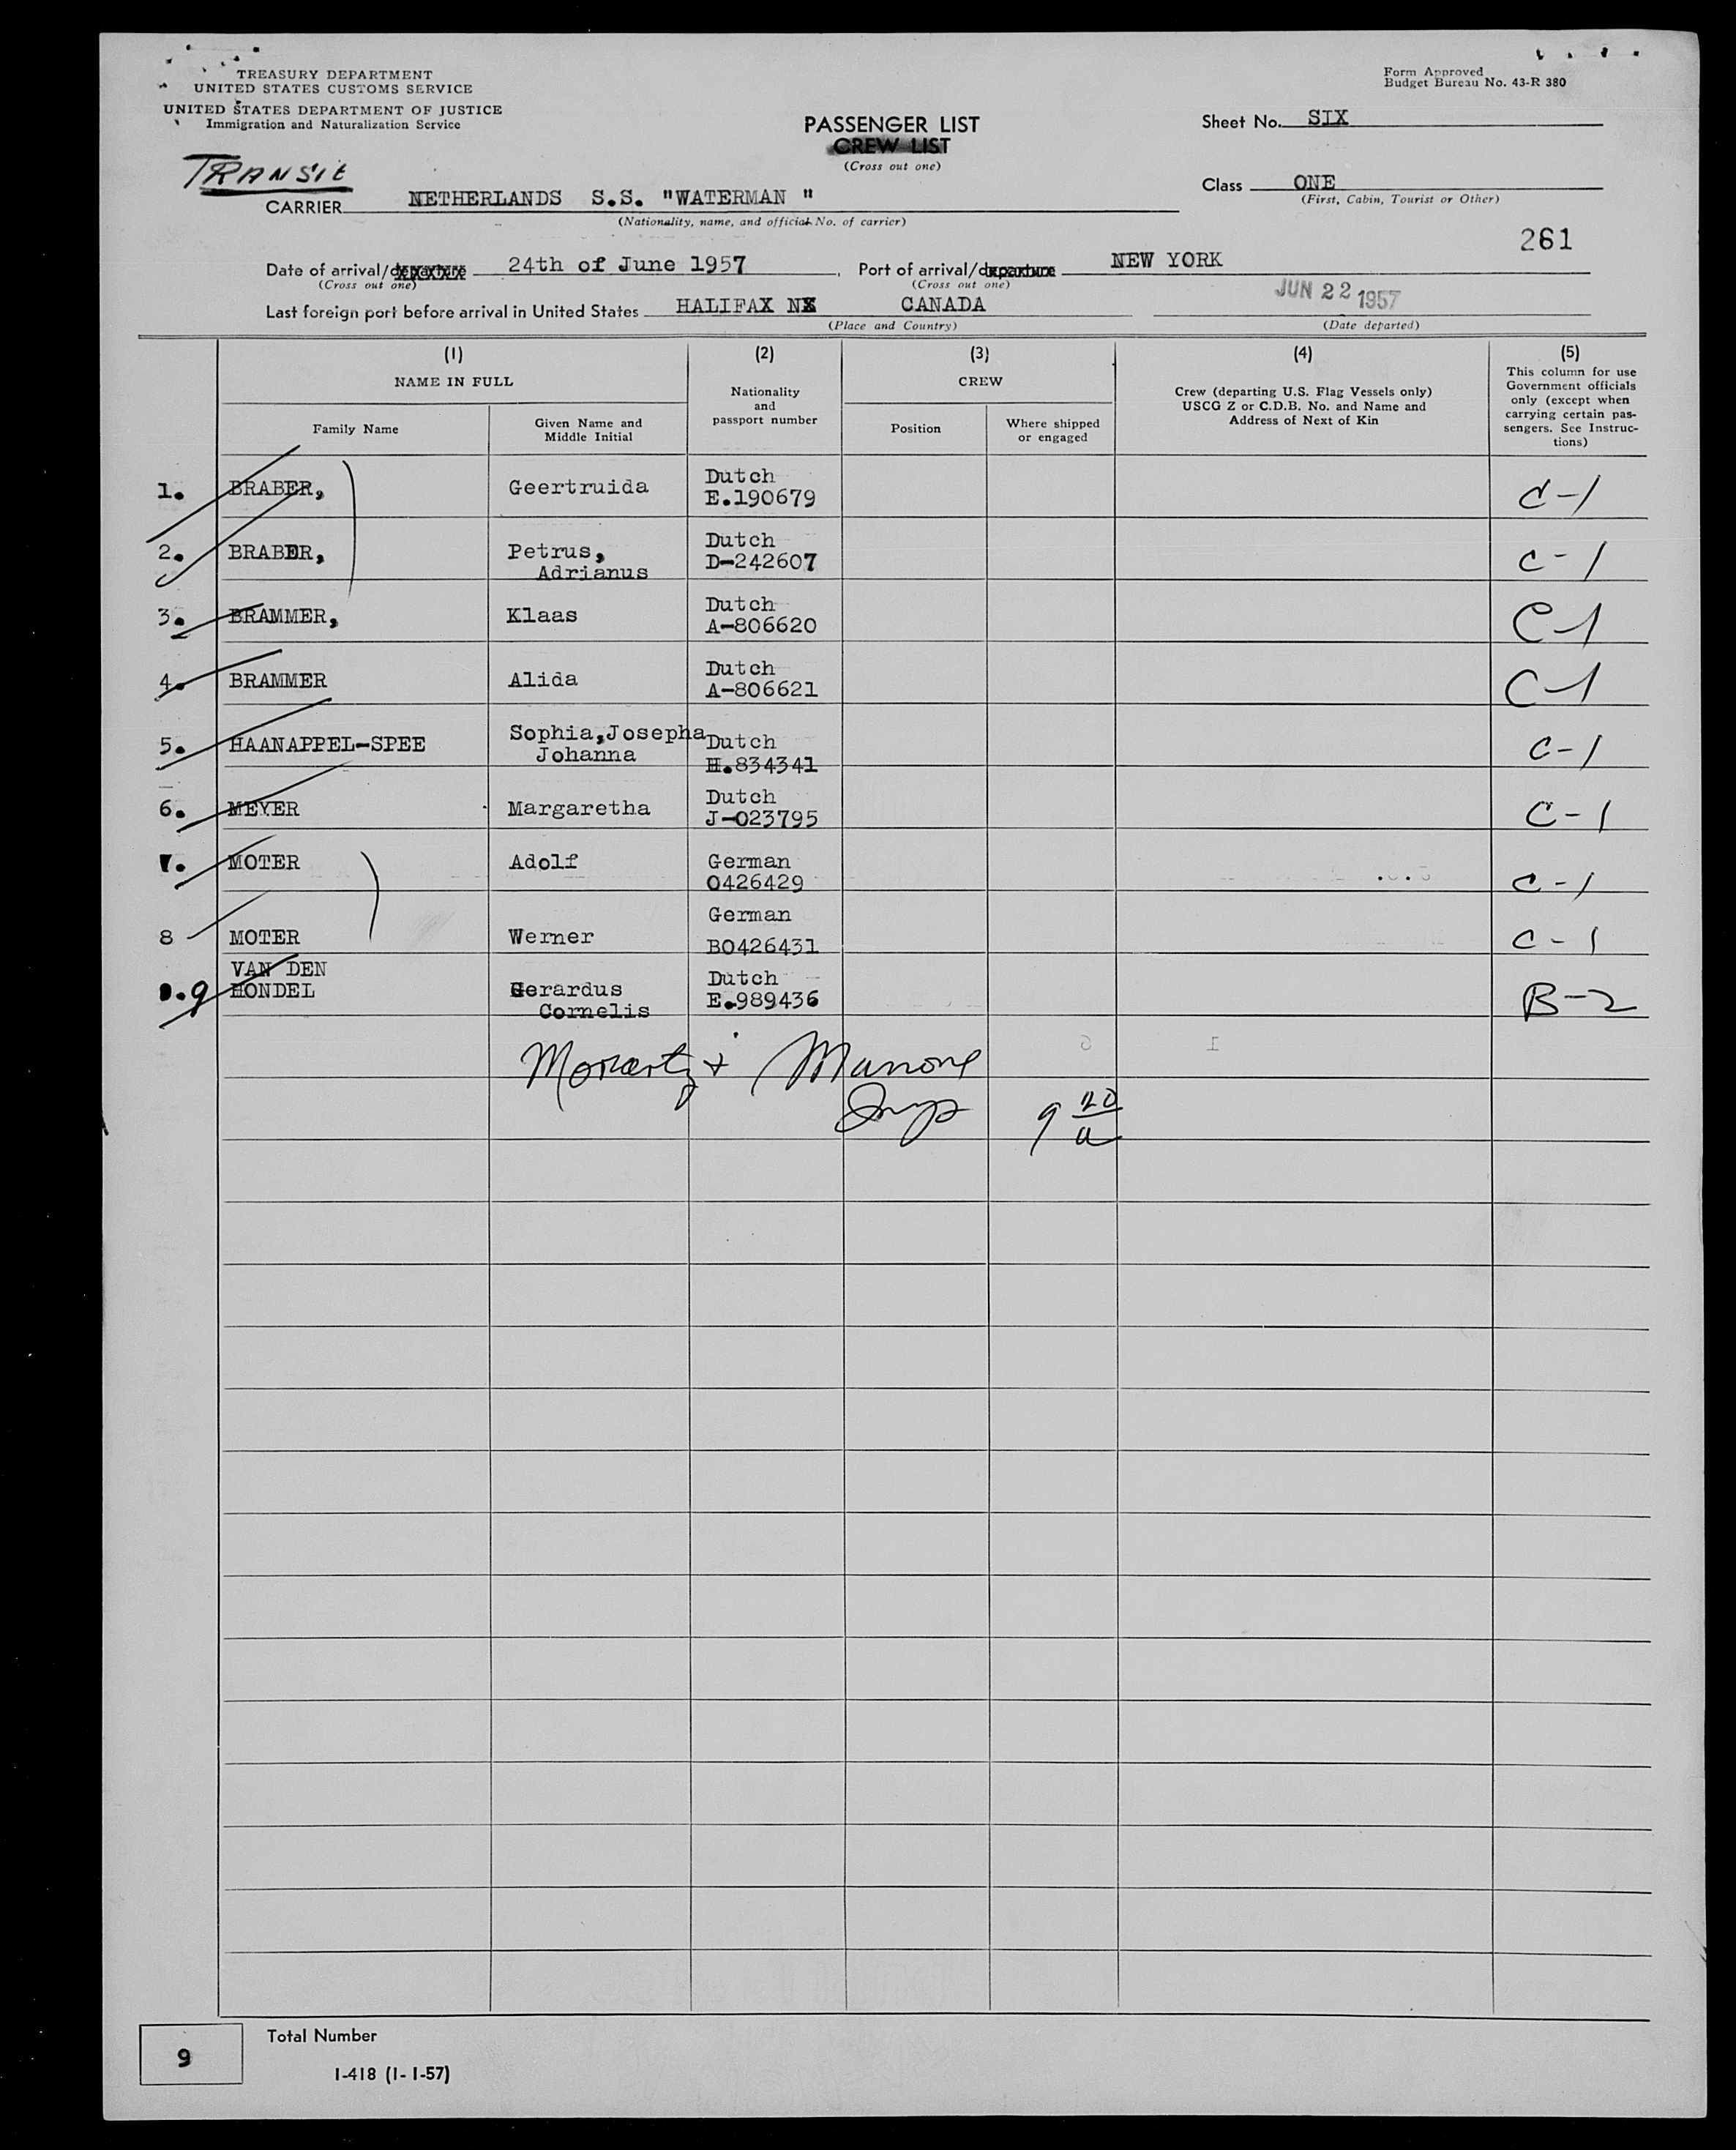 TREASURY DEPARTMENT
UNITED STATES CUSTOMS SERVICE
UNITED STATES DEPARTMENT OF JUSTICE
Immigration and Naturalization Service
Form Approved
Budget Bureau No. 43-R 380
PASSENGER LIST
CREW LIST
(Cross out one)
Sheet No. SIX
TRANSIT
Class ONE
(First, Cabin, Tourist or Other)
CARRIER NETHERLANDS S.S. "WATERMAN "
(Nationality, name, and official No. of carrier)
261
Date of arrival/departure 24th of June 1957, Port of arrival/departure NEW YORK
(Cross out one) (Cross out one)
JUN 22 1957
Last foreign port before arrival in United States HALIFAX CANADA
(Place and Country) (Date departed)
(1) (2) (3) (4) (5)
NAME IN FULL
Family Name
Given Name and
Middle Initial
Nationality
and
passport number
CREW
Position
Where shipped
or engaged
Crew (departing U.S. Flag Vessels only)
USCG Z or C.D.B. No. and Name and
Address of Next of Kin
This column for use
Government officials
only (except when
carrying certain pas-
sengers. See Instruc-
tions)
1. BRABER, Geertruida Dutch
E.190679 C-1
2. BRABER, Petrus, Dutch
Adrianus D-242607 C-1
3. BRAMMER, Klaas Dutch
A-806620 C-1
4. BRAMMER Alida Dutch
A-806621 C-1
5. HAANAPPEL-SPEE Sophia,Josepha Dutch
Johanna H.834341 C-1
6. MEYER Margaretha Dutch
J-023795 C-1
7. MOTER Adolf German
0426429 C-1
8 MOTER Werner German
B0426431 C-1
VAN DEN
9 HONDEL Gerardus Dutch
Cornelis E.989436 B-2
Moriarty + Manone
Insp 9 20/a
9
Total Number
I-418 (I-I-57)